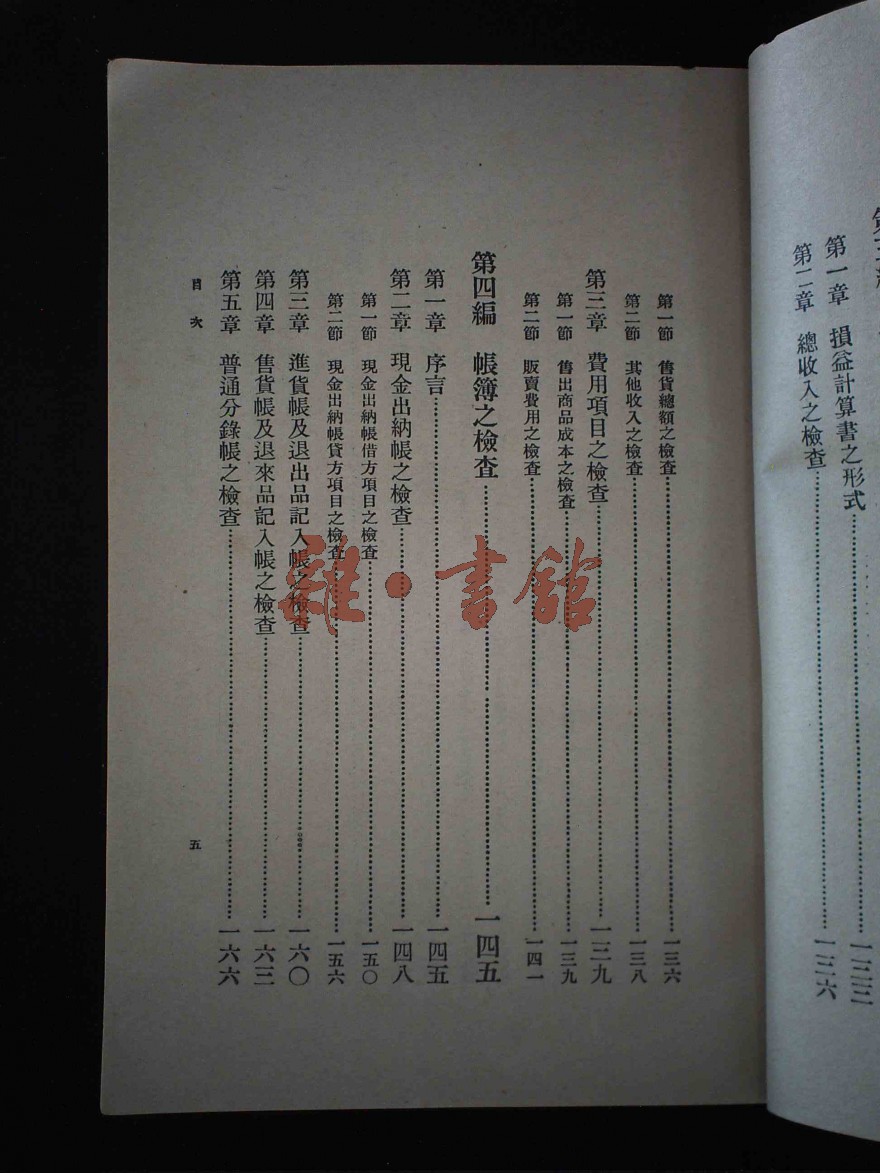 第一章　損益計算書之形式……一三三
第二章　總收入之檢查……一三六
第一節　售貨總額之檢查……一三六
第二節　其他收入之檢查……一三八
第三章　費用項目之檢查……一三九
第一節　售出商品成本之檢查……一三九
第二節　販賣費用之檢查……一四一
第四編　帳簿之檢查……一四五
第一章　序言……一四五
第二章　現金出納帳之檢查……一四八
第一節　現金出納帳借方項目之檢查……一五〇
第二節　現金出納帳貸方項目之檢查……一五六
第三章　進貨帳及退出品記入帳之檢查……一六〇
第四章　售貨帳及退來品記入帳之檢查……一六三
第五章　普通分錄帳之檢查……一六六
目次
五
雜·書館